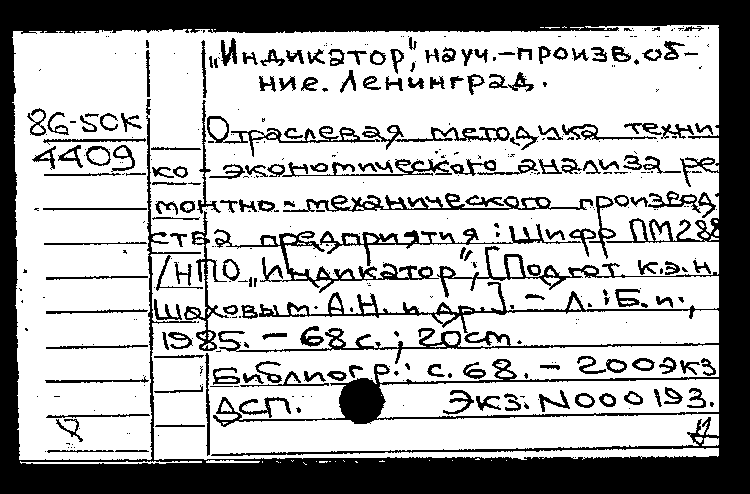 „Индикатор", науч.-произв. об-
ние. Ленинград.
86-5ДСК
4409
Отраслевая методика техни-
ко-экономического анализа ре-
монтно-механического производ-
ства предприятия : Шифр ПМ288
/НПО „Индикатор"; [Подгот. к.э.н.
Шаховым А.Н. и др.]. - Л. : Б.и.,
1985. - 68 с. ; 20 см.
Библиогр.: с. 68. - 200 экз
ДСП. Экз. N000193.